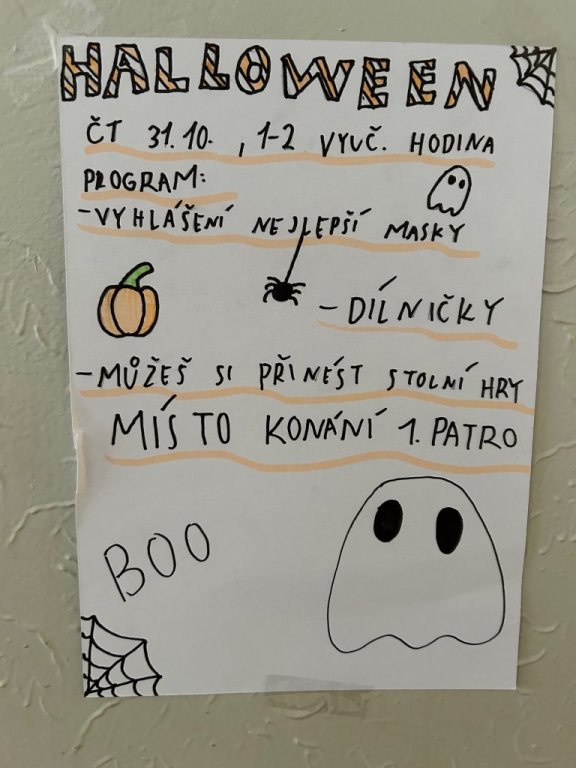 HALLOWEEN
ČT 31.10. , 1-2 VYUČ. HODINA
PROGRAM:
-VYHLÁŠENÍ NEJLEPŠÍ MASKY
-DÍLNIČKY
-MŮŽEŠ SI PŘINÉST STOLNÍ HRY
MÍSTO KONÁNÍ 1. PATRO
BOO